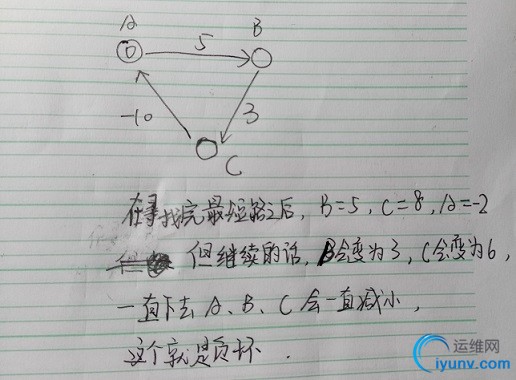 A
B
0
5
-10
3
C
在寻找完最短路之后, B=5, C=8, A=-2
但继续的话, B会变为3, C会变为6,
一直下去 A、B、C 会一直减小,
这个就是负环.
运维网
iyunv.com